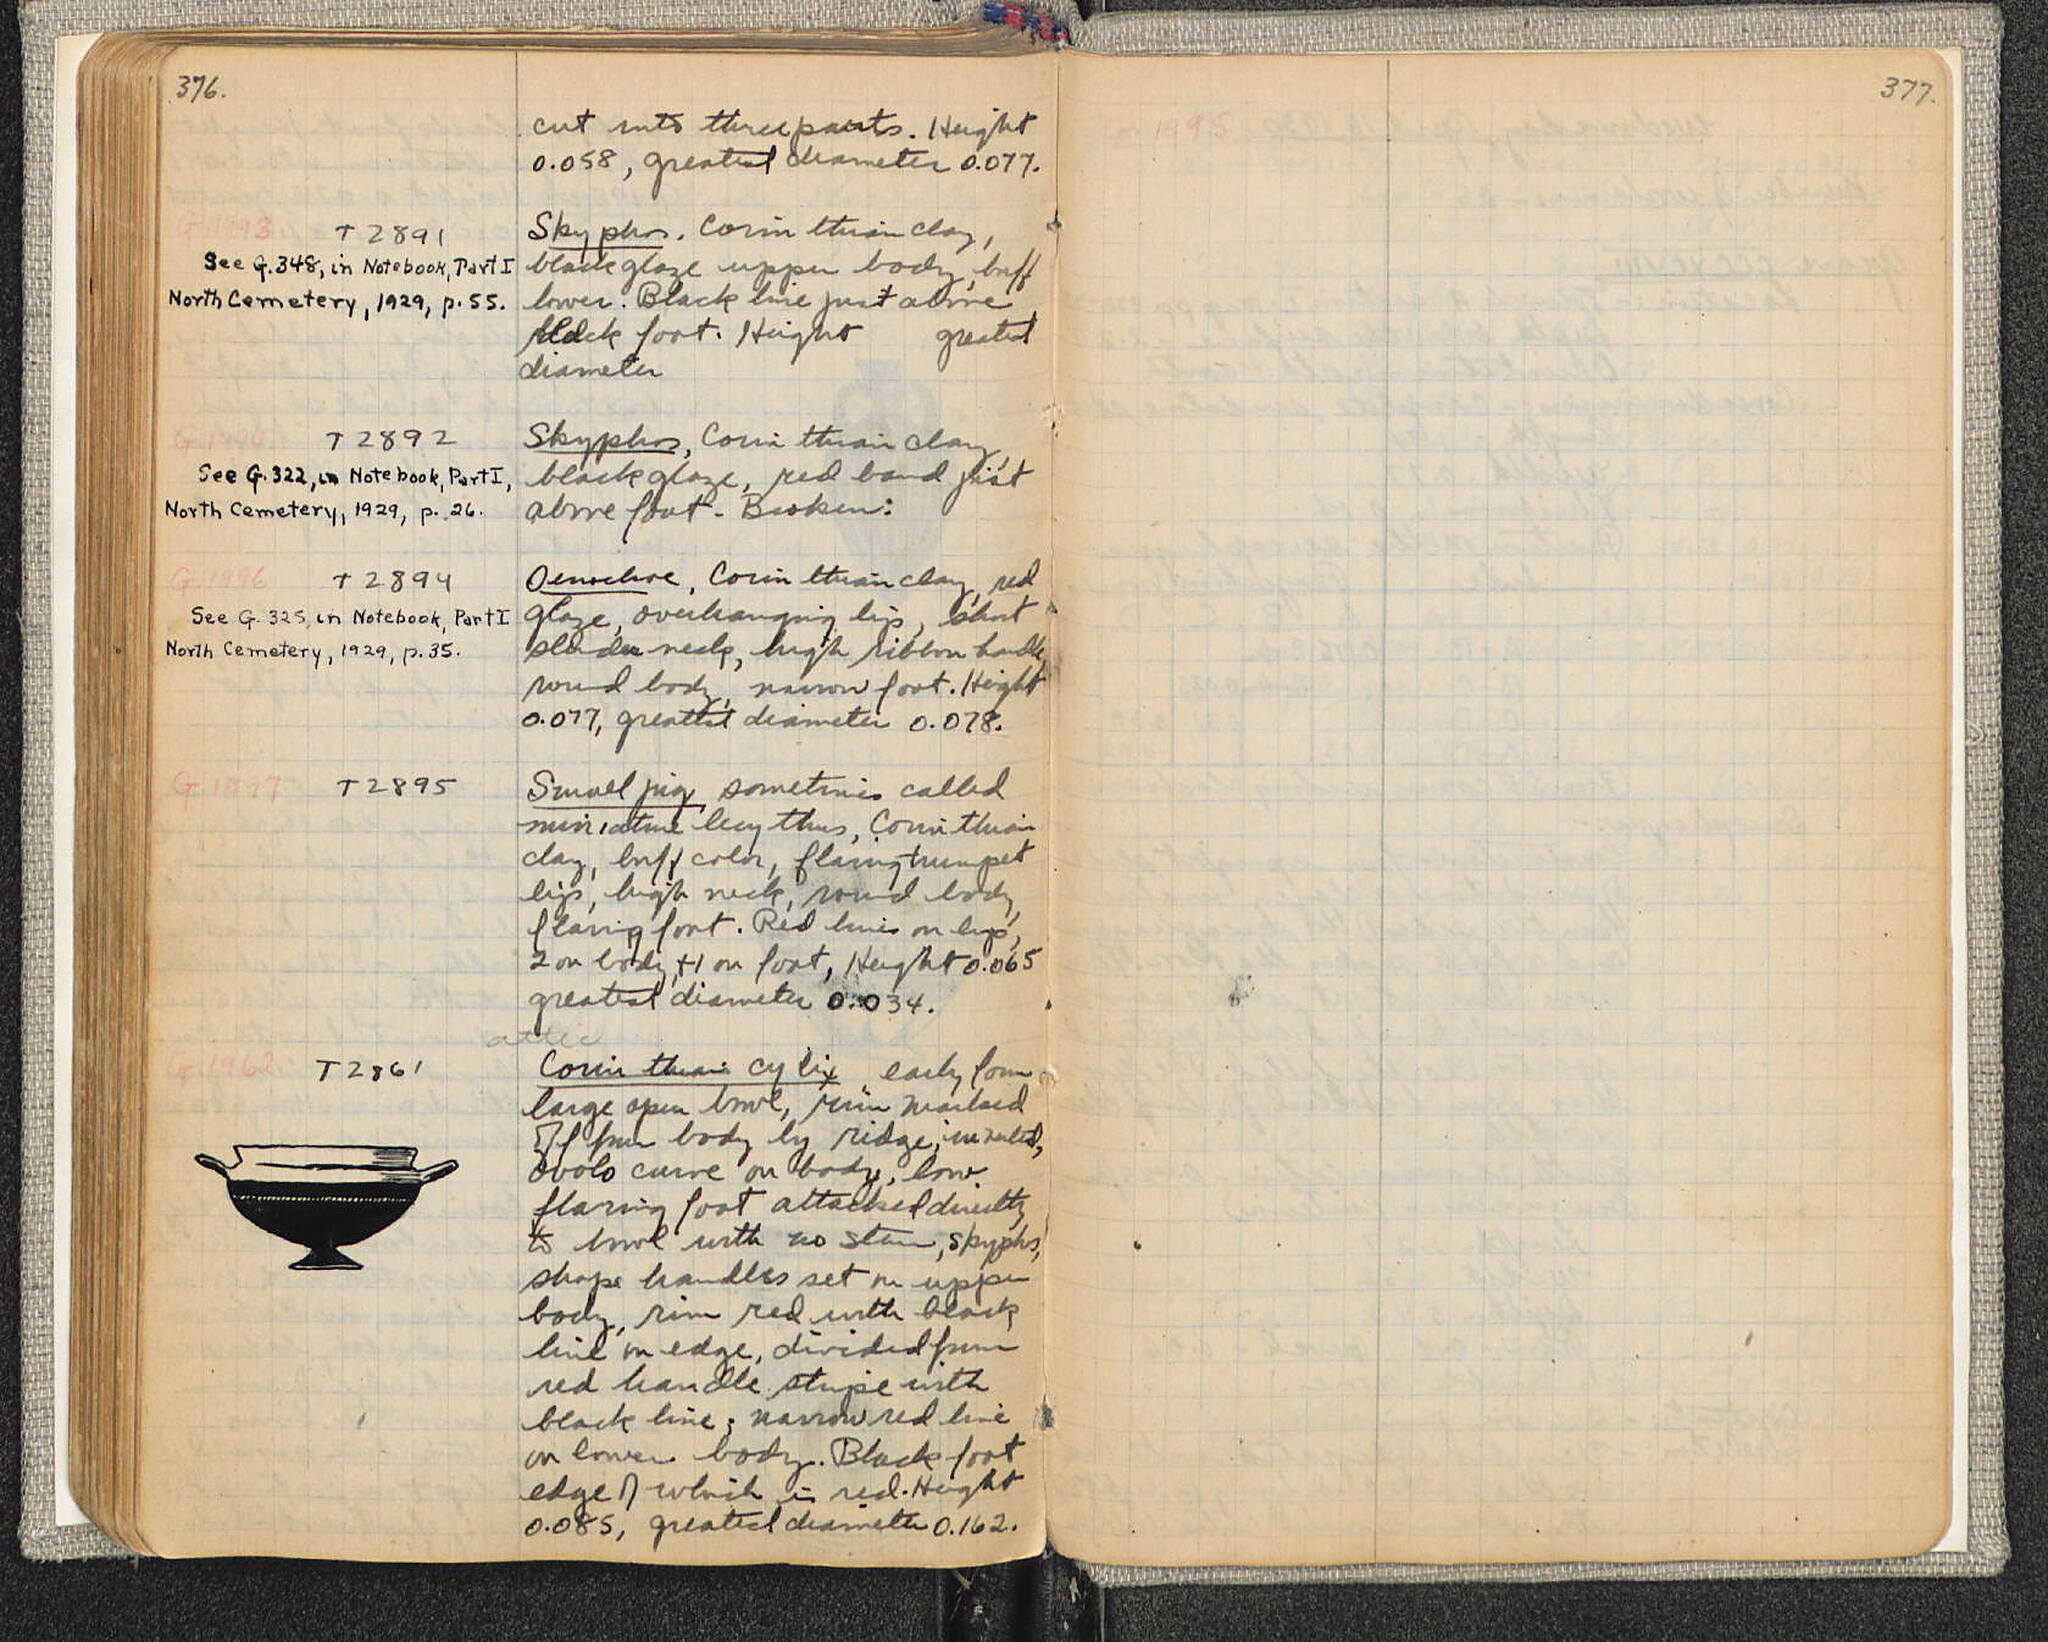 376.
cut into three parts. Height
0.058, greatest diameter 0.077.
G.1993. T2891
See G.348, in Notebook, Part I
North Cemetery, 1929, p.55.
Skyphos. Corinthian clay,
black glaze upper body, buff
lower. Black line just above
black foot. Height greatest
diameter
G.1994. T2892
See G.322, in Notebook, Part I,
North Cemetery, 1929, p. 26.
Skyphos, Corinthian clay,
black glaze, red band just
above foot. Broken.
G.1996 T2894
See G. 325, in Notebook, Part I
North Cemetery, 1929, p.35.
Oenochoe, Corinthian clay, red
glaze, overhanging lip, short
slender neck, high ribbon handle,
round body, narrow foot. Height
0.077, greatest diameter 0.078.
G.1997 T2895
Small jug sometimes called
miniature lecythus, Corinthian
clay, buff color, flaring trumpet
lip, high neck, round body,
flaring foot. Red lines on lip,
2 on body, +1 on foot, Height 0.065
greatest diameter 0.034.
attic
G.1962. T2861
Corinthian cylix early form
large open bowl, rim marked
off from body by ridge,
ovolo curve on body, low
flaring foot attached directly
to bowl with no stem, skyphos,
shape handles set on upper
body, rim red with black
line on edge, divided from
red handle stripe with
black line; narrow red line
on lower body. Black foot
edge of which is red. Height
0.085, greatest diameter 0.162.
377.